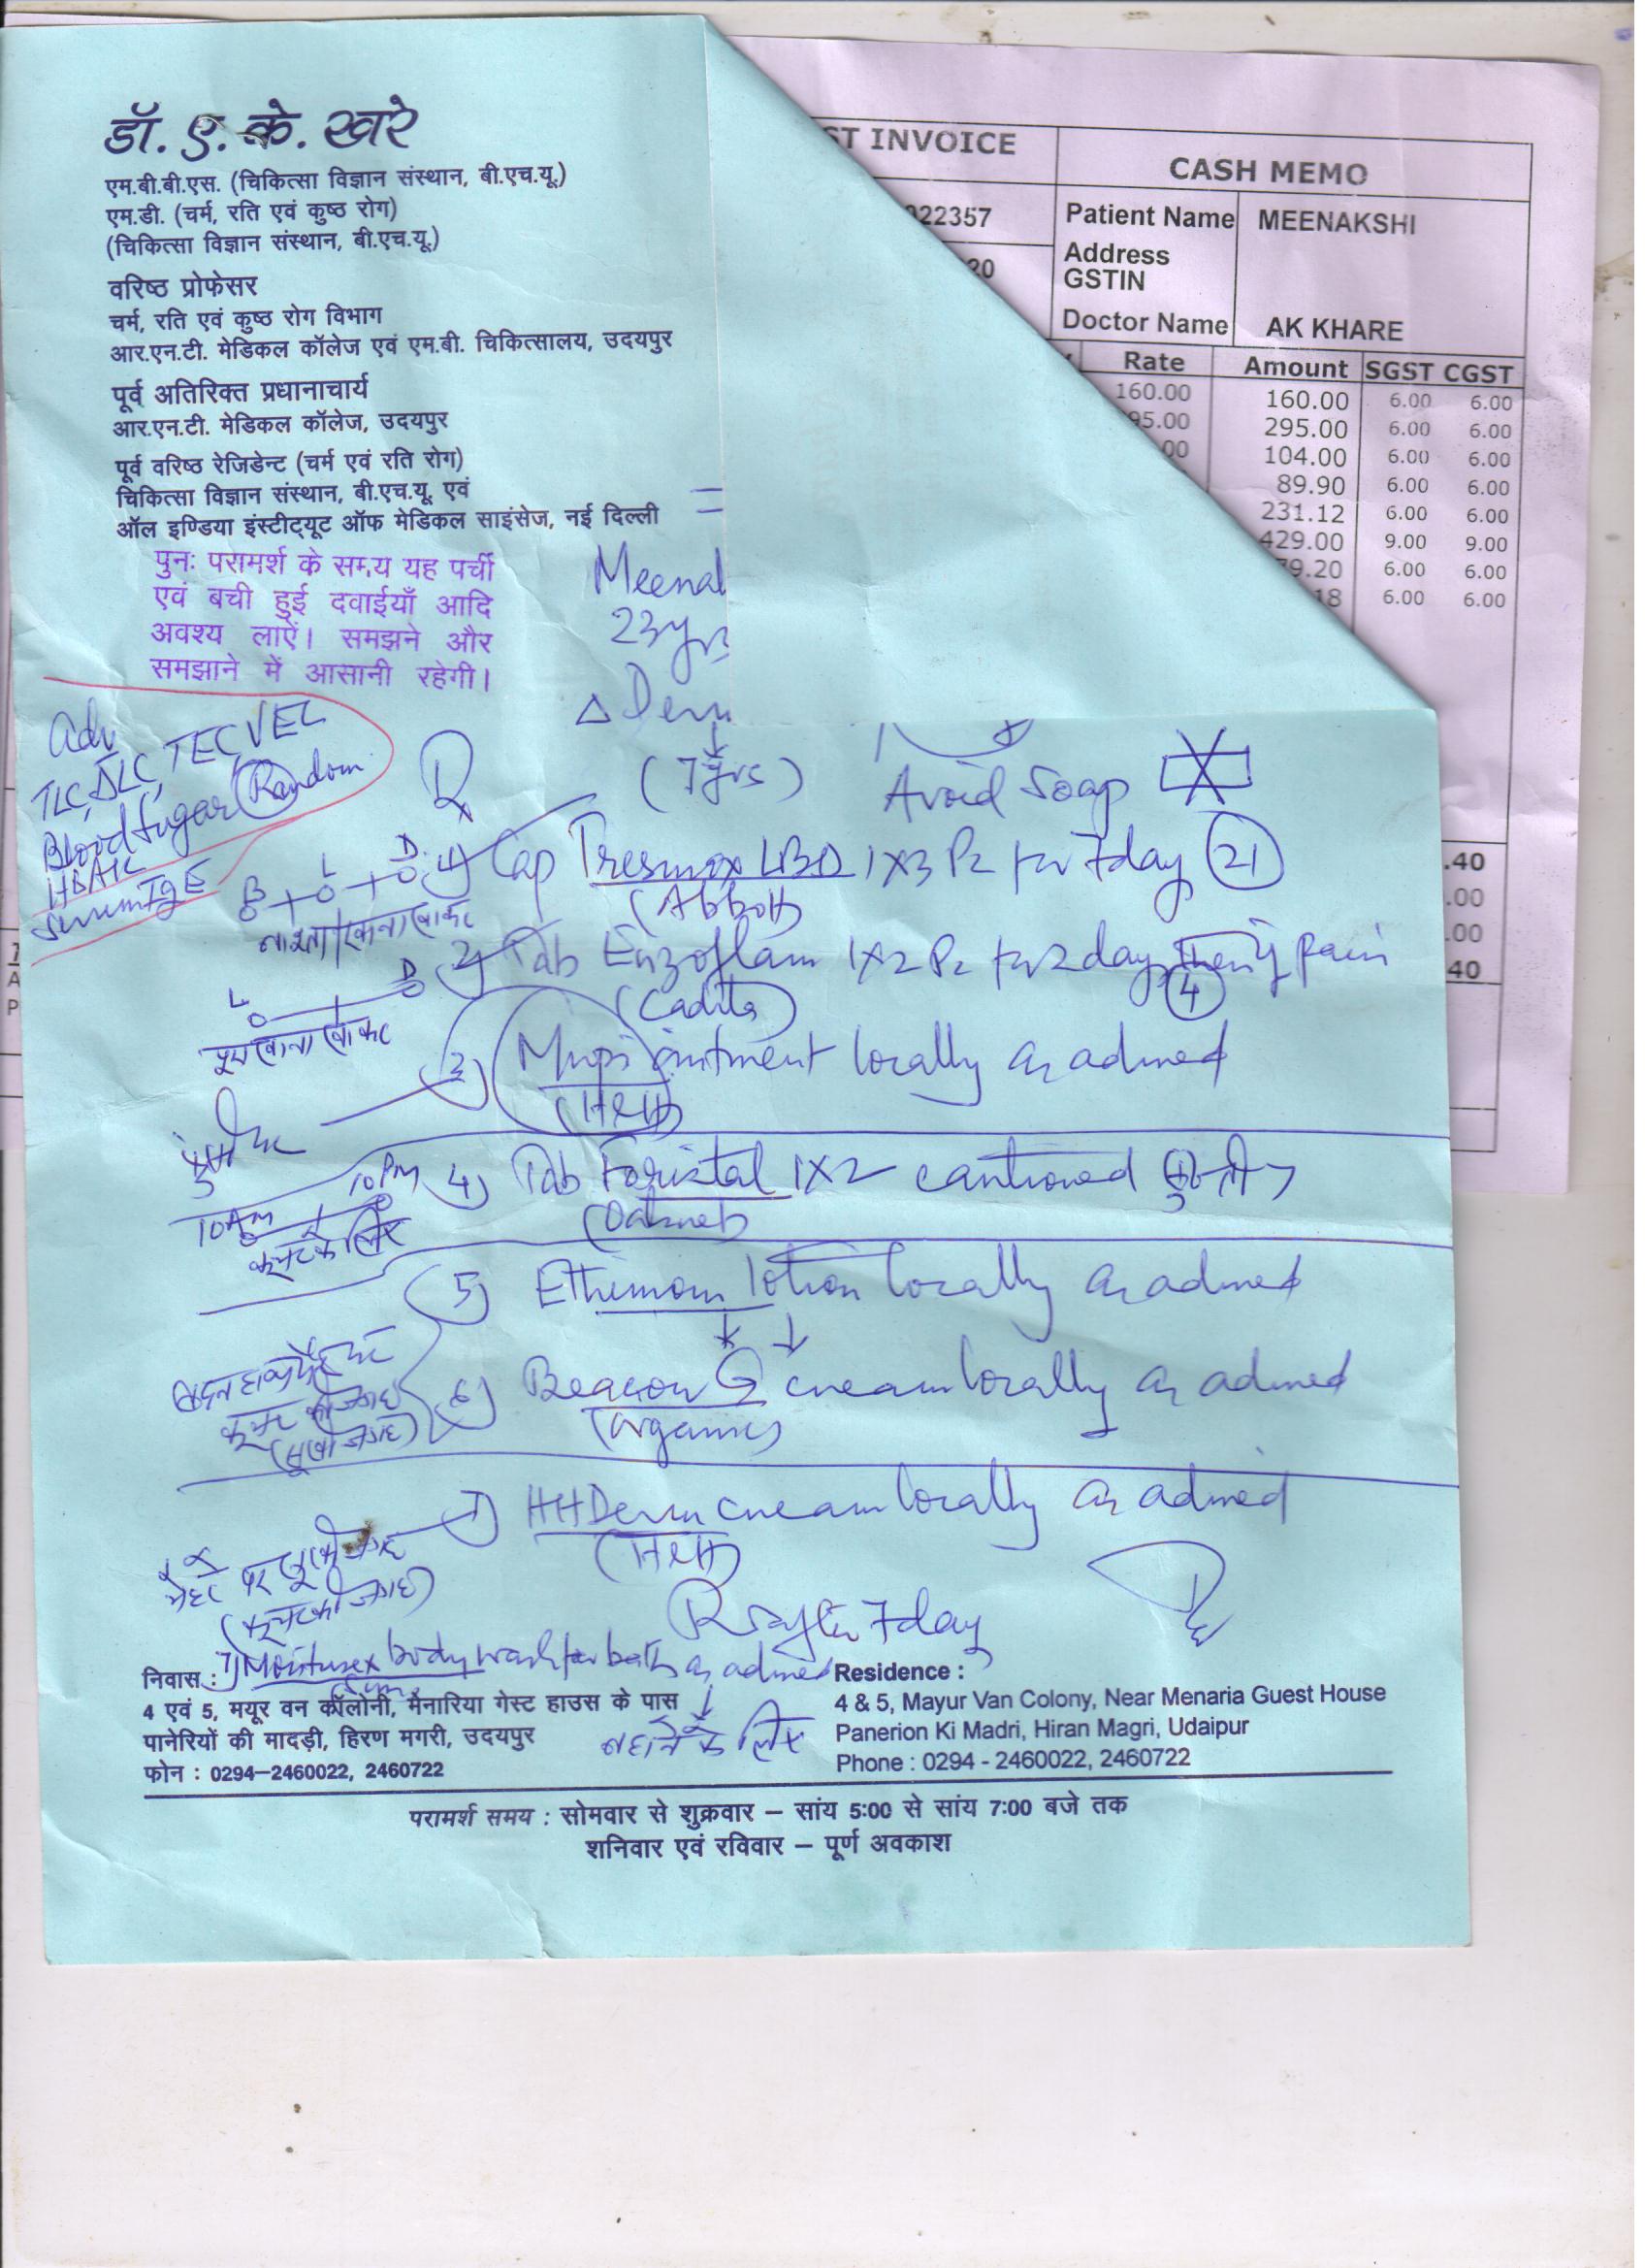 डॉ. ए. के. खरे
एम.बी.बी.एस. (चिकित्सा विज्ञान संस्थान, बी.एच.यू.)
एम.डी. (चर्म, रति एवं कुष्ठ रोग)
(चिकित्सा विज्ञान संस्थान, बी.एच.यू.)
वरिष्ठ प्रोफेसर
चर्म, रति एवं कुष्ठ रोग विभाग
आर.एन.टी. मेडिकल कॉलेज एवं एम.बी. चिकित्सालय, उदयपुर
पूर्व अतिरिक्त प्रधानाचार्य
आर.एन.टी. मेडिकल कॉलेज, उदयपुर
पूर्व वरिष्ठ रेजिडेन्ट (चर्म एवं रति रोग)
चिकित्सा विज्ञान संस्थान, बी.एच.यू. एवं
ऑल इण्डिया इंस्टीट्यूट ऑफ मेडिकल साइंसेज, नई दिल्ली
पुनः परामर्श के समय यह पर्ची
एवं बची हुई दवाईयाँ आदि
अवश्य लाऐं। समझने और
समझाने में आसानी रहेगी।
ST INVOICE
CASH MEMO
022357
Patient Name MEENAKSHI
20
Address
GSTIN
Doctor Name AK KHARE
Rate Amount SGST CGST
160.00 160.00 6.00 6.00
95.00 295.00 6.00 6.00
00 104.00 6.00 6.00
89.90 6.00 6.00
231.12 6.00 6.00
429.00 9.00 9.00
79.20 6.00 6.00
18 6.00 6.00
.40
.00
.00
40
Meenal
23yrs
Δ Derm
(7yrs)
Avoid Soap
Adv
TLC, DLC, TEC,
Blood Sugar Random
HBA1C
Serum IgE
B L D
1) Cap LBD 1x3 for 7day 21
(Abbott)
नाश्ता/खाना खाकर
L D
2) Tab Enzoflam 1x2 for 2day, then if pain
4
(Cadila)
खाना खाकर
3) Mupi ointment locally as advised
(H&H)
10AM 10PM
4) Tab 1x2 cautioned
5) lotion locally as advised
6) Beacon G cream locally as advised
(Organic)
7) HHDerm cream locally as advised
(H&H)
R after 7day
7) Moisturex body wash for bath as advised
नहाने के लिए
निवास :
4 एवं 5, मयूर वन कॉलोनी, मेनारिया गेस्ट हाउस के पास
पानेरियों की मादड़ी, हिरण मगरी, उदयपुर
फोन : 0294-2460022, 2460722
Residence :
4 & 5, Mayur Van Colony, Near Menaria Guest House
Panerion Ki Madri, Hiran Magri, Udaipur
Phone : 0294 - 2460022, 2460722
परामर्श समय : सोमवार से शुक्रवार – सांय 5:00 से सांय 7:00 बजे तक
शनिवार एवं रविवार – पूर्ण अवकाश